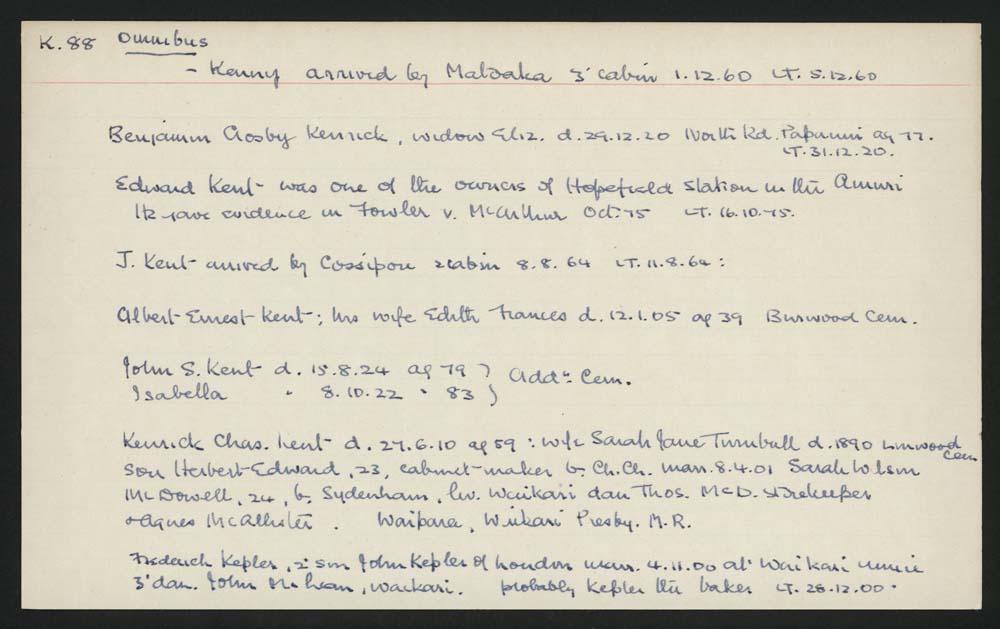 K.88 Omnibus
- Kenny arrived by Matoaka 3' cabin 1.12.60 LT. 5.12.60
Benjamin Crosby Kenrick, widow Eliz. d. 29.12.20 North Rd. Papanui ag 77.
LT. 31.12.20.
Edward Kent was one of the owners of Hopefield station in the Amuri
He gave evidence in Fowler v. McArthur Oct. 75 LT. 16.10.75.
J. Kent arrived by Cossipore 2 cabin 8.8.64 LT. 11.8.64:
Albert Ernest Kent; his wife Edith Frances d. 12.1.05 ag 39 Burwood Cem.
John S. Kent d. 15.8.24 ag 79 } Addn Cem.
Isabella " 8.10.22 " 83 }
Kenrick Chas. Kent d. 27.6.10 ag 59: wife Sarah Jane Turnbull d. 1890 Linwood Cem
son Herbert Edward, 23, cabinet-maker b. Ch.Ch. marr. 8.4.01 Sarah Wilson
McDowell, 24, b. Sydenham, liv. Waikari dau Thos. McD. storekeeper
+ Agnes McAllister. Waipara, Waikari Presby. M.R.
Frederick Kepler, 2' son John Kepler of London marr. 4.11.00 at Waikari
3' dau. John McLean, Waikari. probably Kepler the baker LT. 28.12.00.